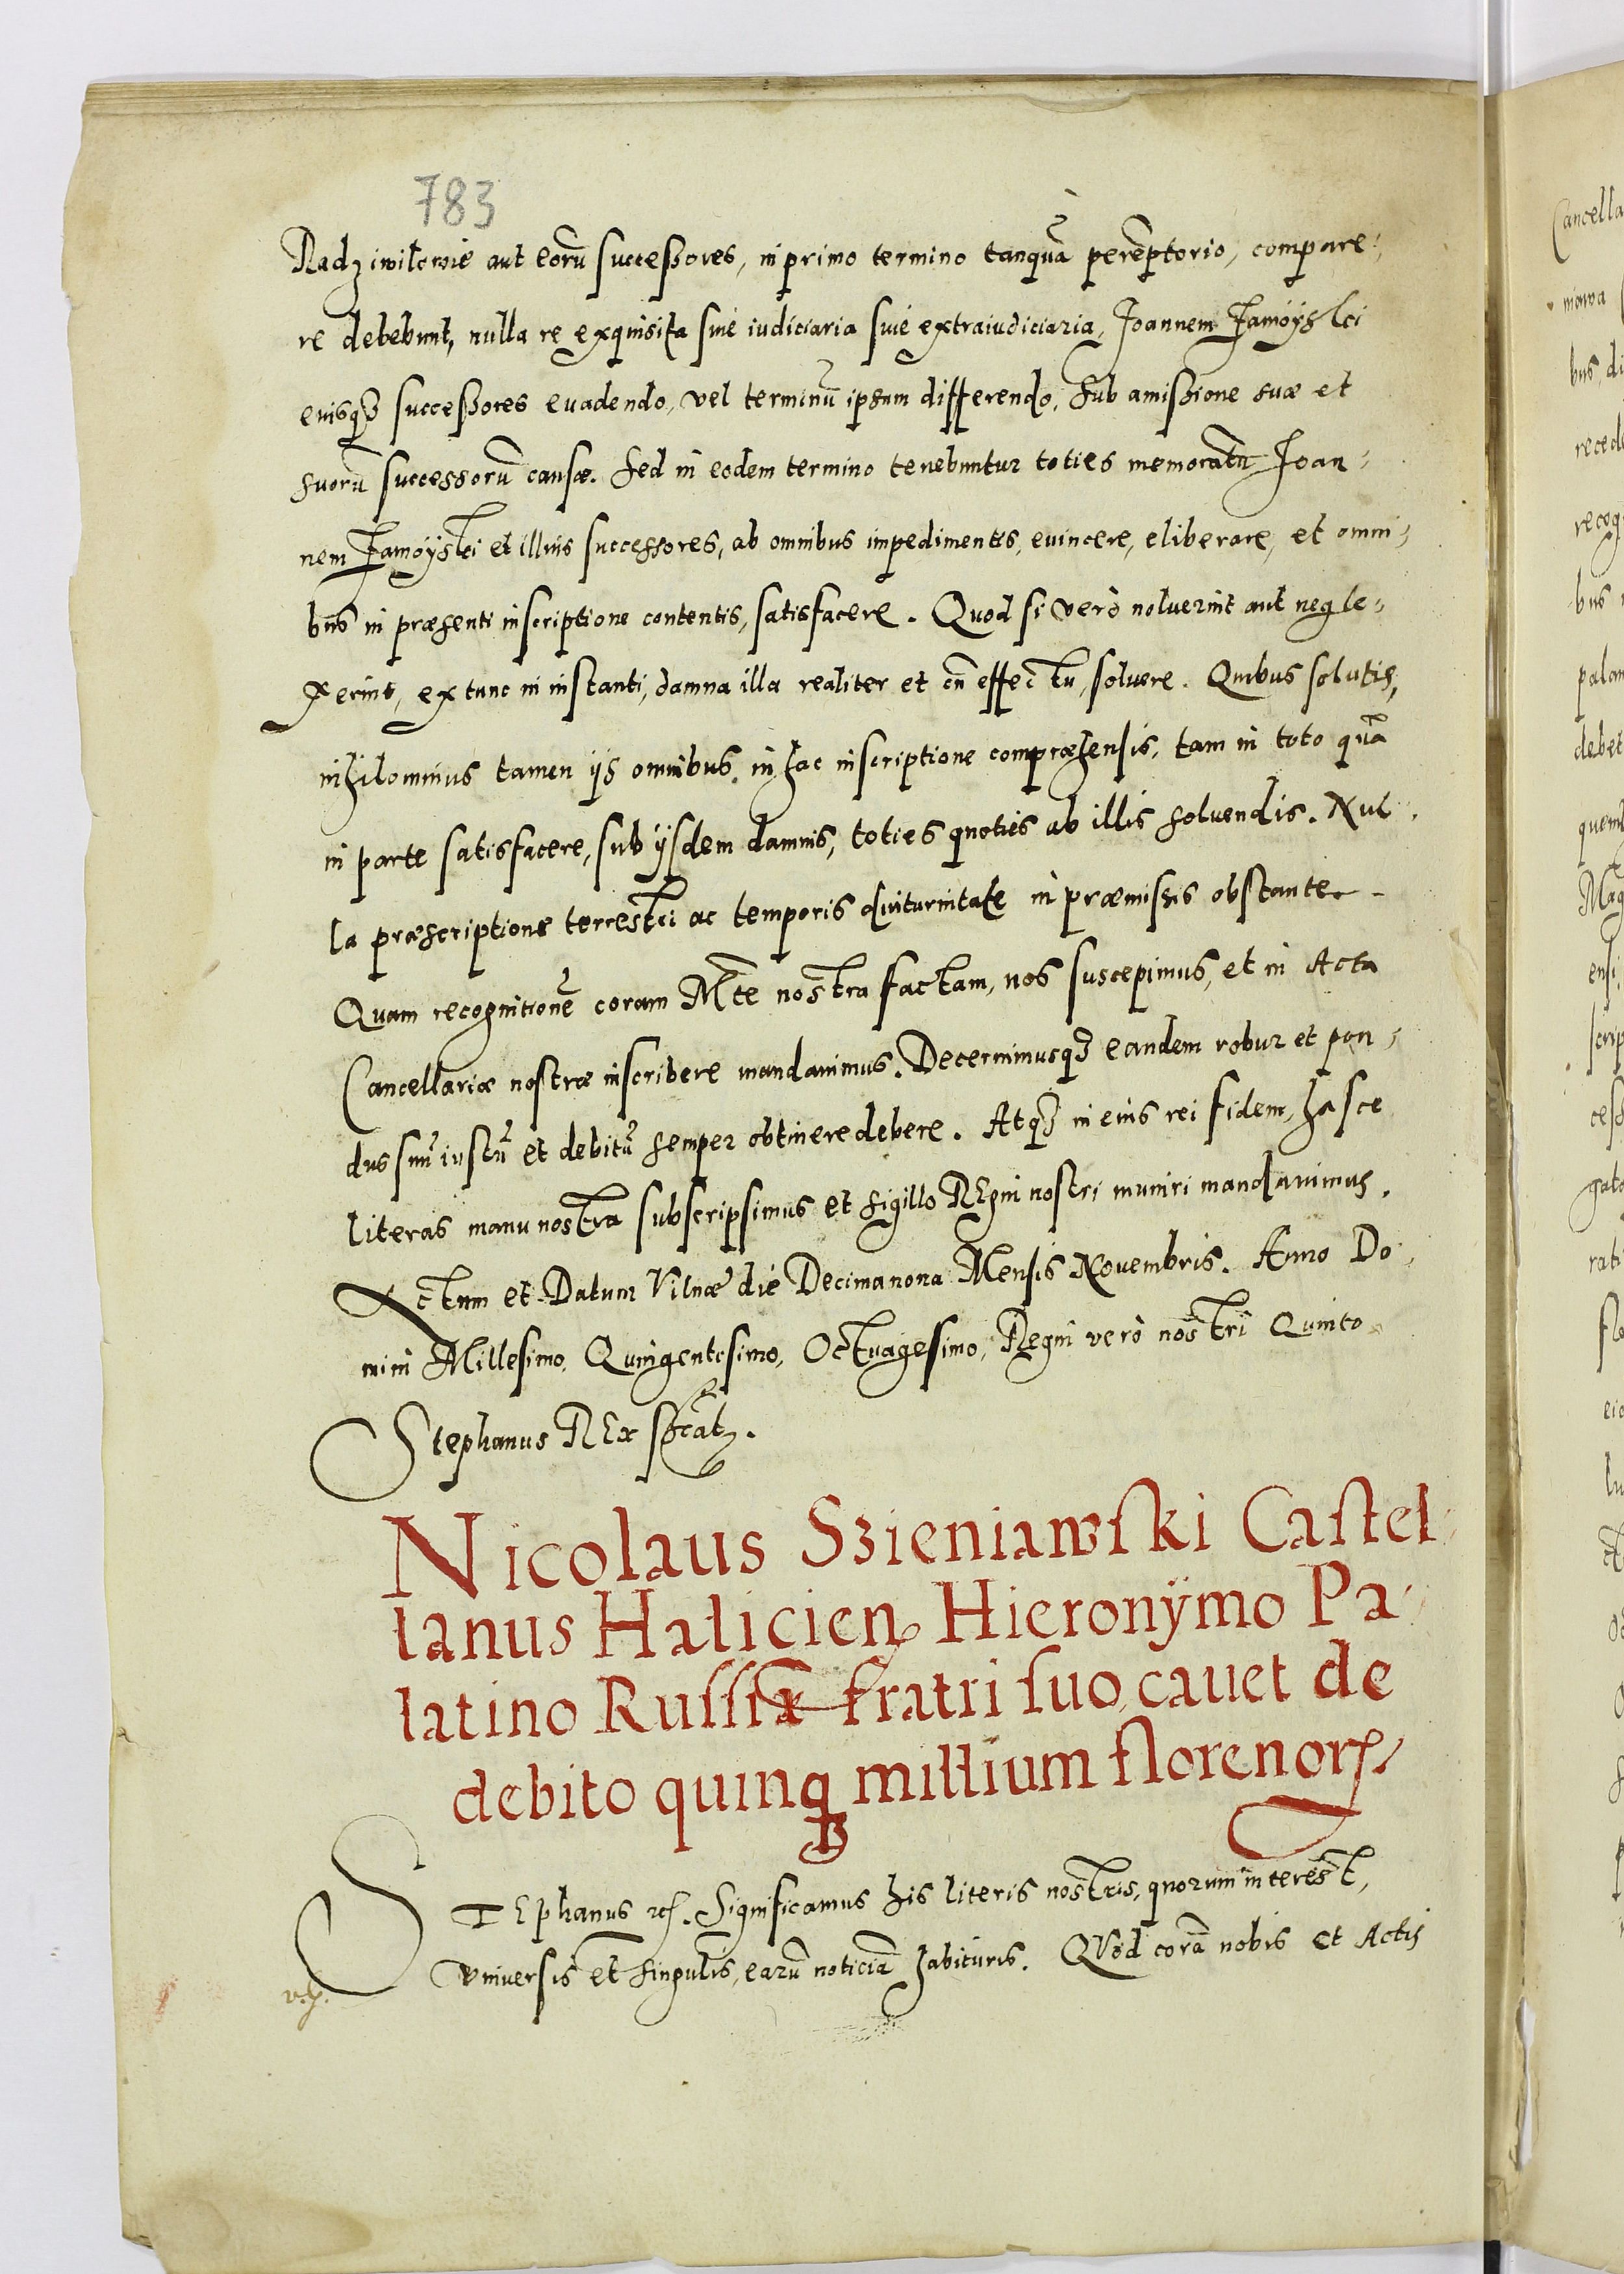 783
Radziwilowie aut eorũ successores, in primo termino tanquã perẽptorio, compare-
re debebunt, nulla re exquisita siue iudiciaria siue extraiudiciaria, Joannem Zamoÿski
eiusq3 successores euadendo, vel terminũ ipsum differendo, sub amissione suæ et
suorũ successorũ causæ. Sed in eodem termino tenebuntur toties memoratũ Joan-
nem Zamoÿski et illius successores, ab omnibus impedimentis, euincere, eliberare, et omni-
bus in præsenti inscriptione contentis, satisfacere. Quod si verò noluerint aut negle-
xerint, ex tunc in instanti, damna illa realiter et cũ effectu, soluere. Quibus solutis,
nihilominus tamen ijs omnibus, in hac inscriptione compræhensis, tam in toto quã
in parte satisfacere, sub ijsdem damnis, toties quoties ab illis soluendis. Nul-
la præscriptione terrestri ac temporis diuturnitate in præmissis obstante.
Quam recognitionẽ coram Mte nostra factam, nos suscepimus, et in Acta
Cancellariæ nostræ inscribere mandauimus. Decernimusq3 eandem robur et pon-
dus suũ iustũ et debitũ semper obtinere debere. Atq3 in eius rei fidem, hasce
literas manu nostra subscripsimus et sigillo Regni nostri muniri mandauimus.
Actum et Datum Vilnæ die Decimanona Mensis Nouembris. Anno Do-
mini Millesimo, Quingentesimo, Octuagesimo, Regni verò nostri Quinto
Stephanus REx sscät.
Nicolaus Szieniawski Castel-
lanus Halicien Hieronÿmo Pa-
latino Russiæ fratri suo, cauet de
debito quinq3 millium florenorꝝ
STEphanus rꝭ. Significamus his literis nostris, quorum interest,
vniuersis et singulis, earũ noticiã habituris. QVod corã nobis et Actis